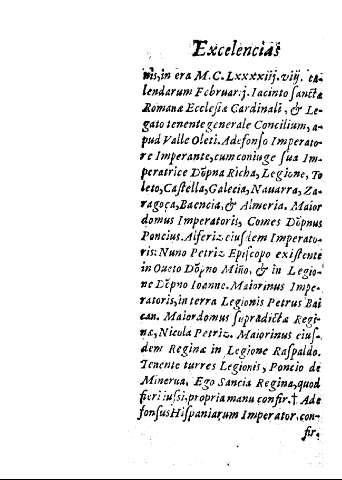 Excelencias
nis, in era M.C.LXXXXiij. viij. ca-
lendarum Februar: j. Iacinto sanctæ
Romanæ Ecclesiæ Cardinali, & Le-
gato tenente generale Concilium, a-
pud Valle Oleti. Adefonso Imperato-
re Imperante, cum coniuge sua Im-
peratrice Dõpna Richa, Legione, To
leto, Castella, Galecia, Nauarra, Za-
ragoça, Baencia, & Almeria. Maior
domus Imperatoris, Comes Dõpnus
Poncius. Alferiz eiusdem Imperato-
ris: Nuno Petriz Episcopo existente
in Oueto Dõpno Miño, & in Legio-
ne Dõpno Ioanne. Maiorinus Impe-
ratoris, in terra Legionis Petrus Bai
can. Maiordomus supradictæ Regi-
næ, Nicola Petriz. Maiorinus eius-
dem Reginæ in Legione Raspaldo.
Tenente turres Legionis, Poncio de
Minerua. Ego Sancia Regina, quod
fieri iussi, propria manu confir. † Ade
fonsus Hispaniarum Imperator. con-
fir.